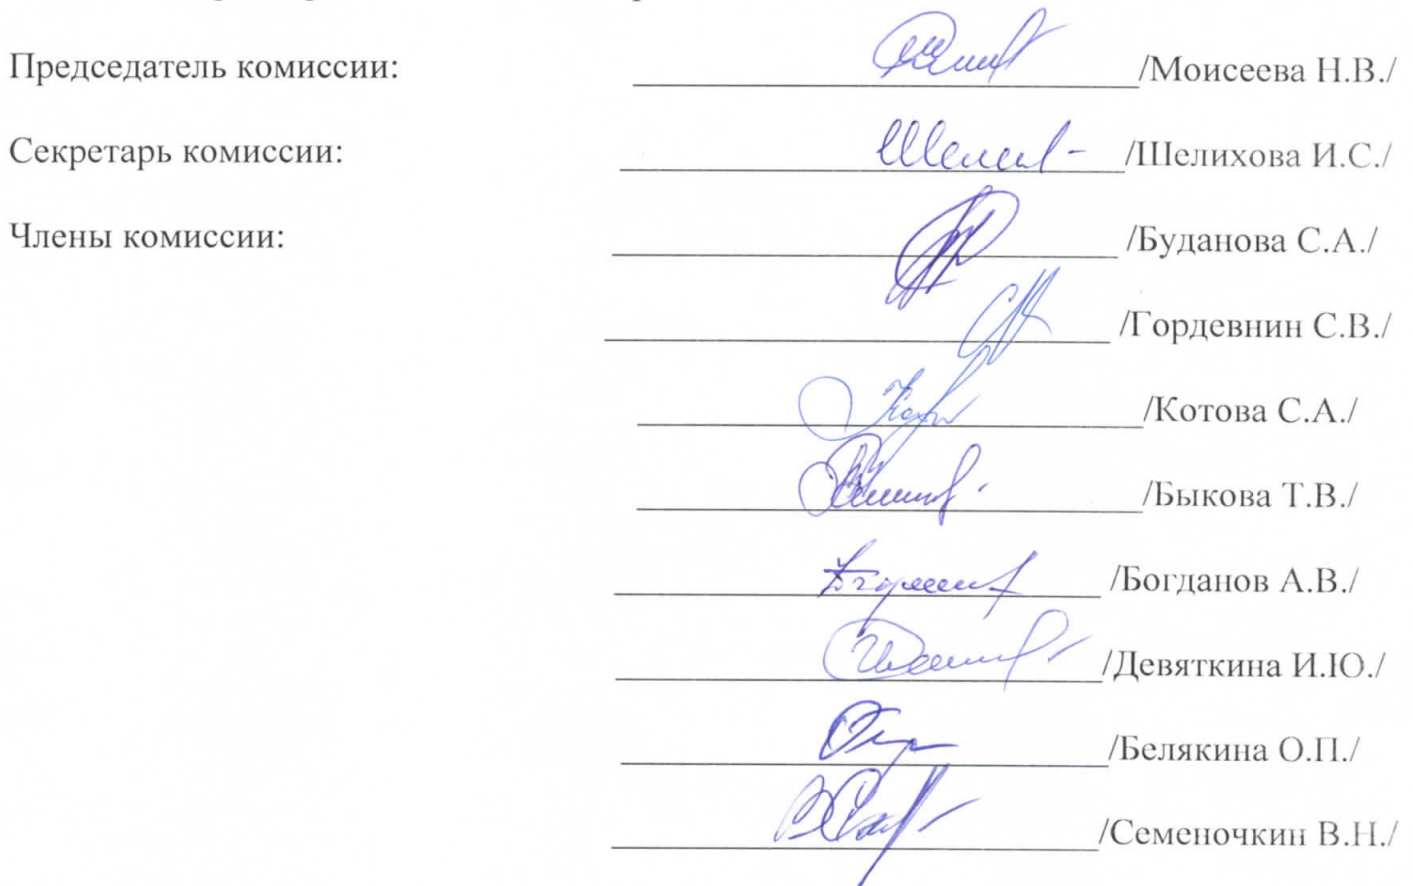 Председатель комиссии: /Моисеева Н.В./
Секретарь комиссии: /Шелихова И.С./
Члены комиссии: /Буданова С.А./
/Гордевнин С.В./
/Котова С.А./
/Быкова Т.В./
/Богданов А.В./
/Девяткина И.Ю./
/Белякина О.П./
/Семеночкин В.Н./